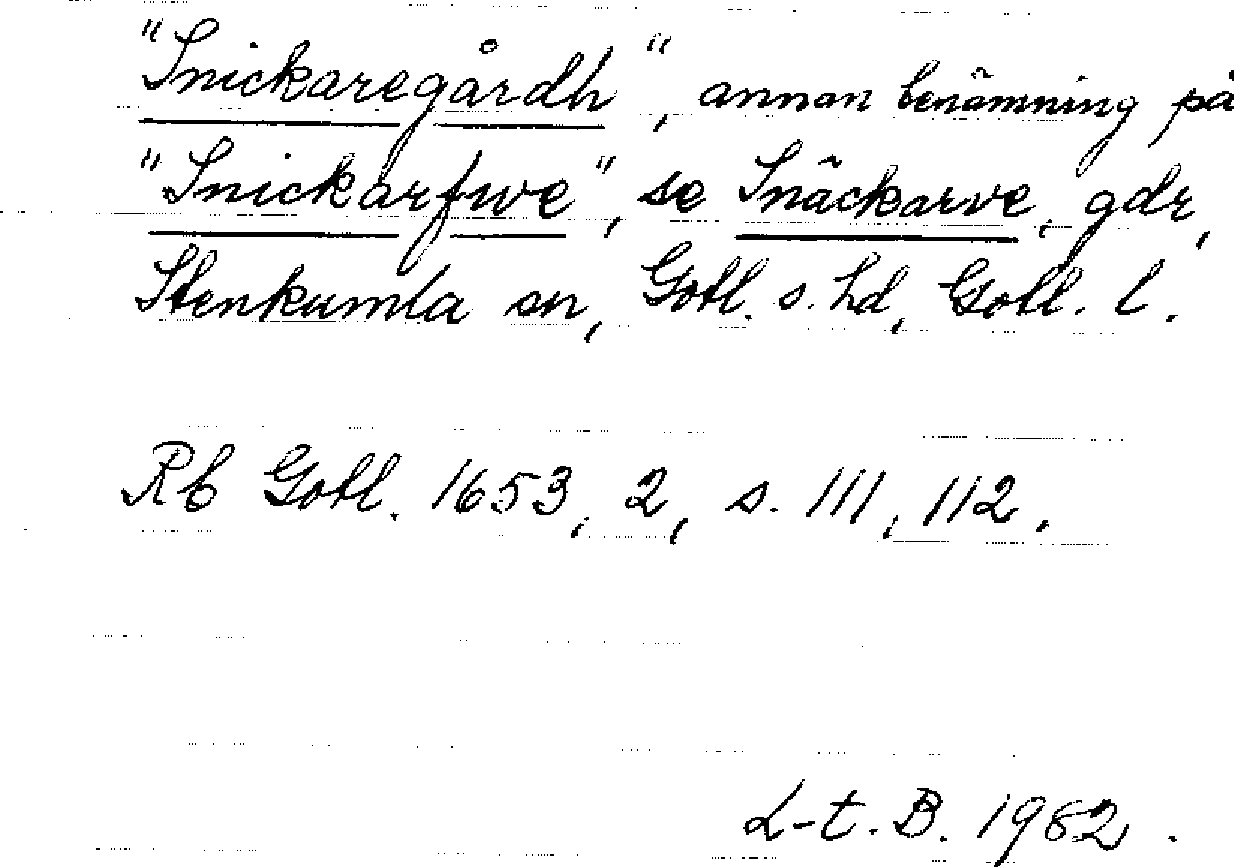 "Snickaregårdh", annan benämning på
"Snickarfwe", se Snäckarve, gdr,
Stenkumla sn, Gotl. s. hd, Gotl. l.
Rb Gotl. 1653, 2, s. 111, 112.
L-t. B. 1982.